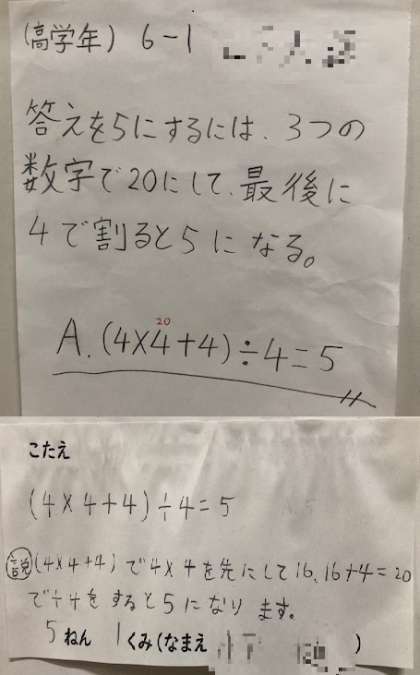 (高学年) 6-1
答えを5にするには、3つの
数字で20にして、最後に
4で割ると5になる。
20
A.(4×4+4)÷4=5
こたえ
(4×4+4)÷4=5
説(4×4+4)で4×4を先にして16、16+4=20
で÷4をすると5になります。
5ねん 1くみ(なまえ )